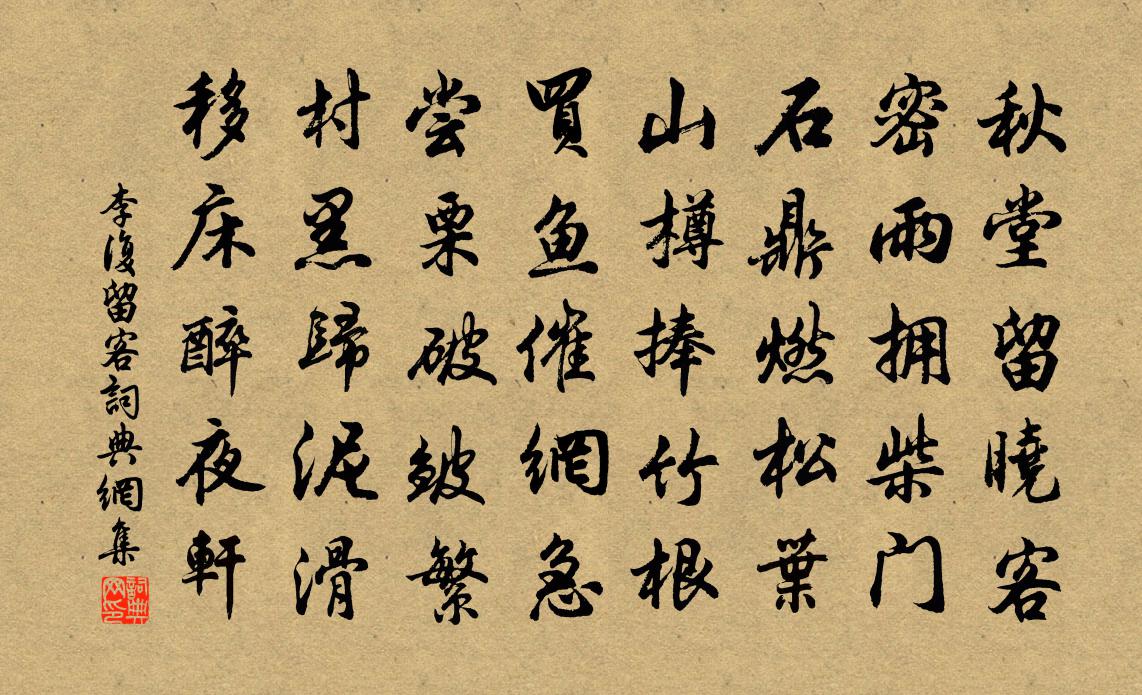 秋堂留曉客
密雨拥柴门
石鼎燃松葉
山樽捧竹根
買魚催網急
尝栗破皴繁
村黑歸泥滑
移床醉夜軒
李復留客詞典網集
詞典网印